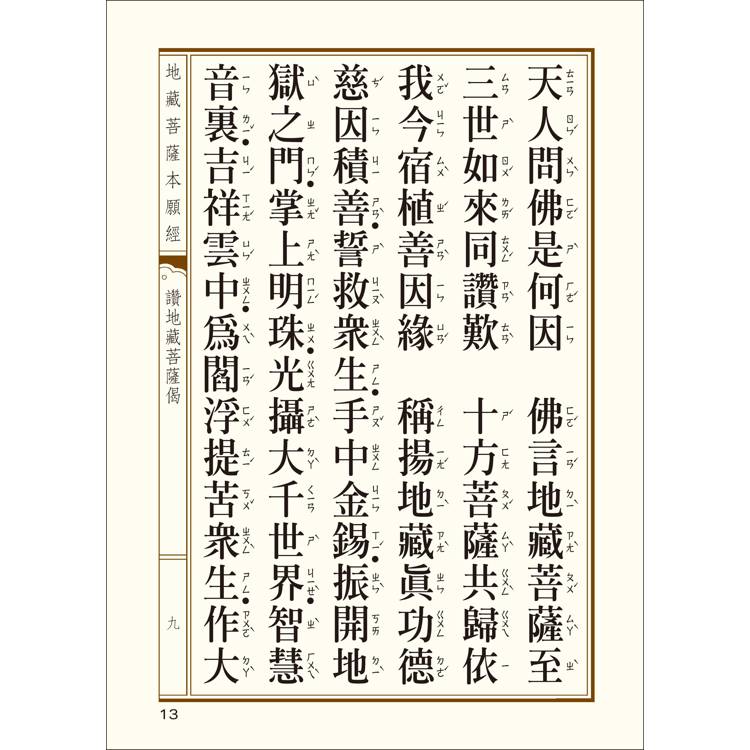 天人問佛是何因 佛言地藏菩薩至
三世如來同讚歎 十方菩薩共歸依
我今宿植善因緣 稱揚地藏眞功德
慈因積善誓救衆生手中金錫振開地
獄之門掌上明珠光攝大千世界智慧
音裏吉祥雲中爲閻浮提苦衆生作大
地藏菩薩本願經
讚地藏菩薩偈
九
13